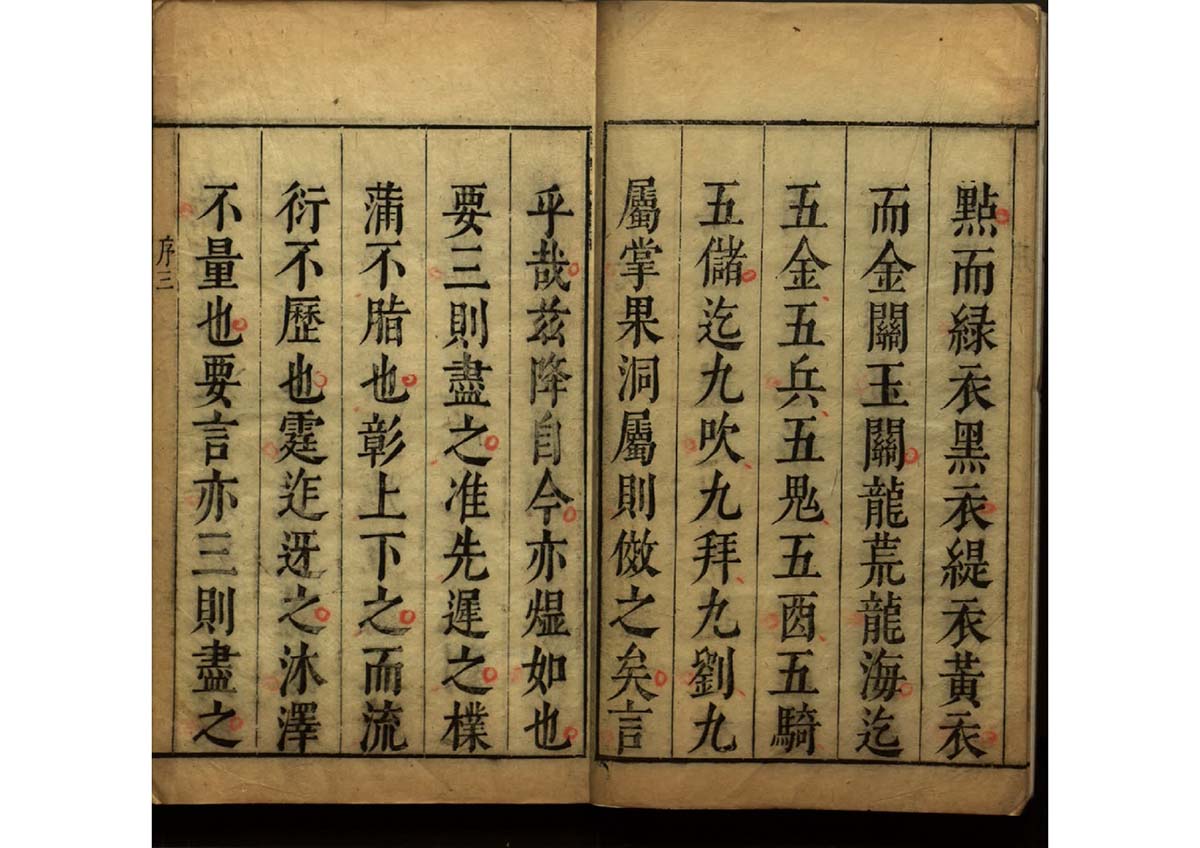 點而緑衣黑衣緹衣黃衣
而金關玉關龍荒龍海迄
五金五兵五鬼五酉五騎
五儲迄九吹九拜九劉九
屬掌果洞屬則倣之矣言
乎哉茲降自今亦煴如也
要三則盡之准先遲之樸
蒲不脂也彰上下之而流
衍不歷也霆迮迓之沐澤
不量也要言亦三則盡之
序三